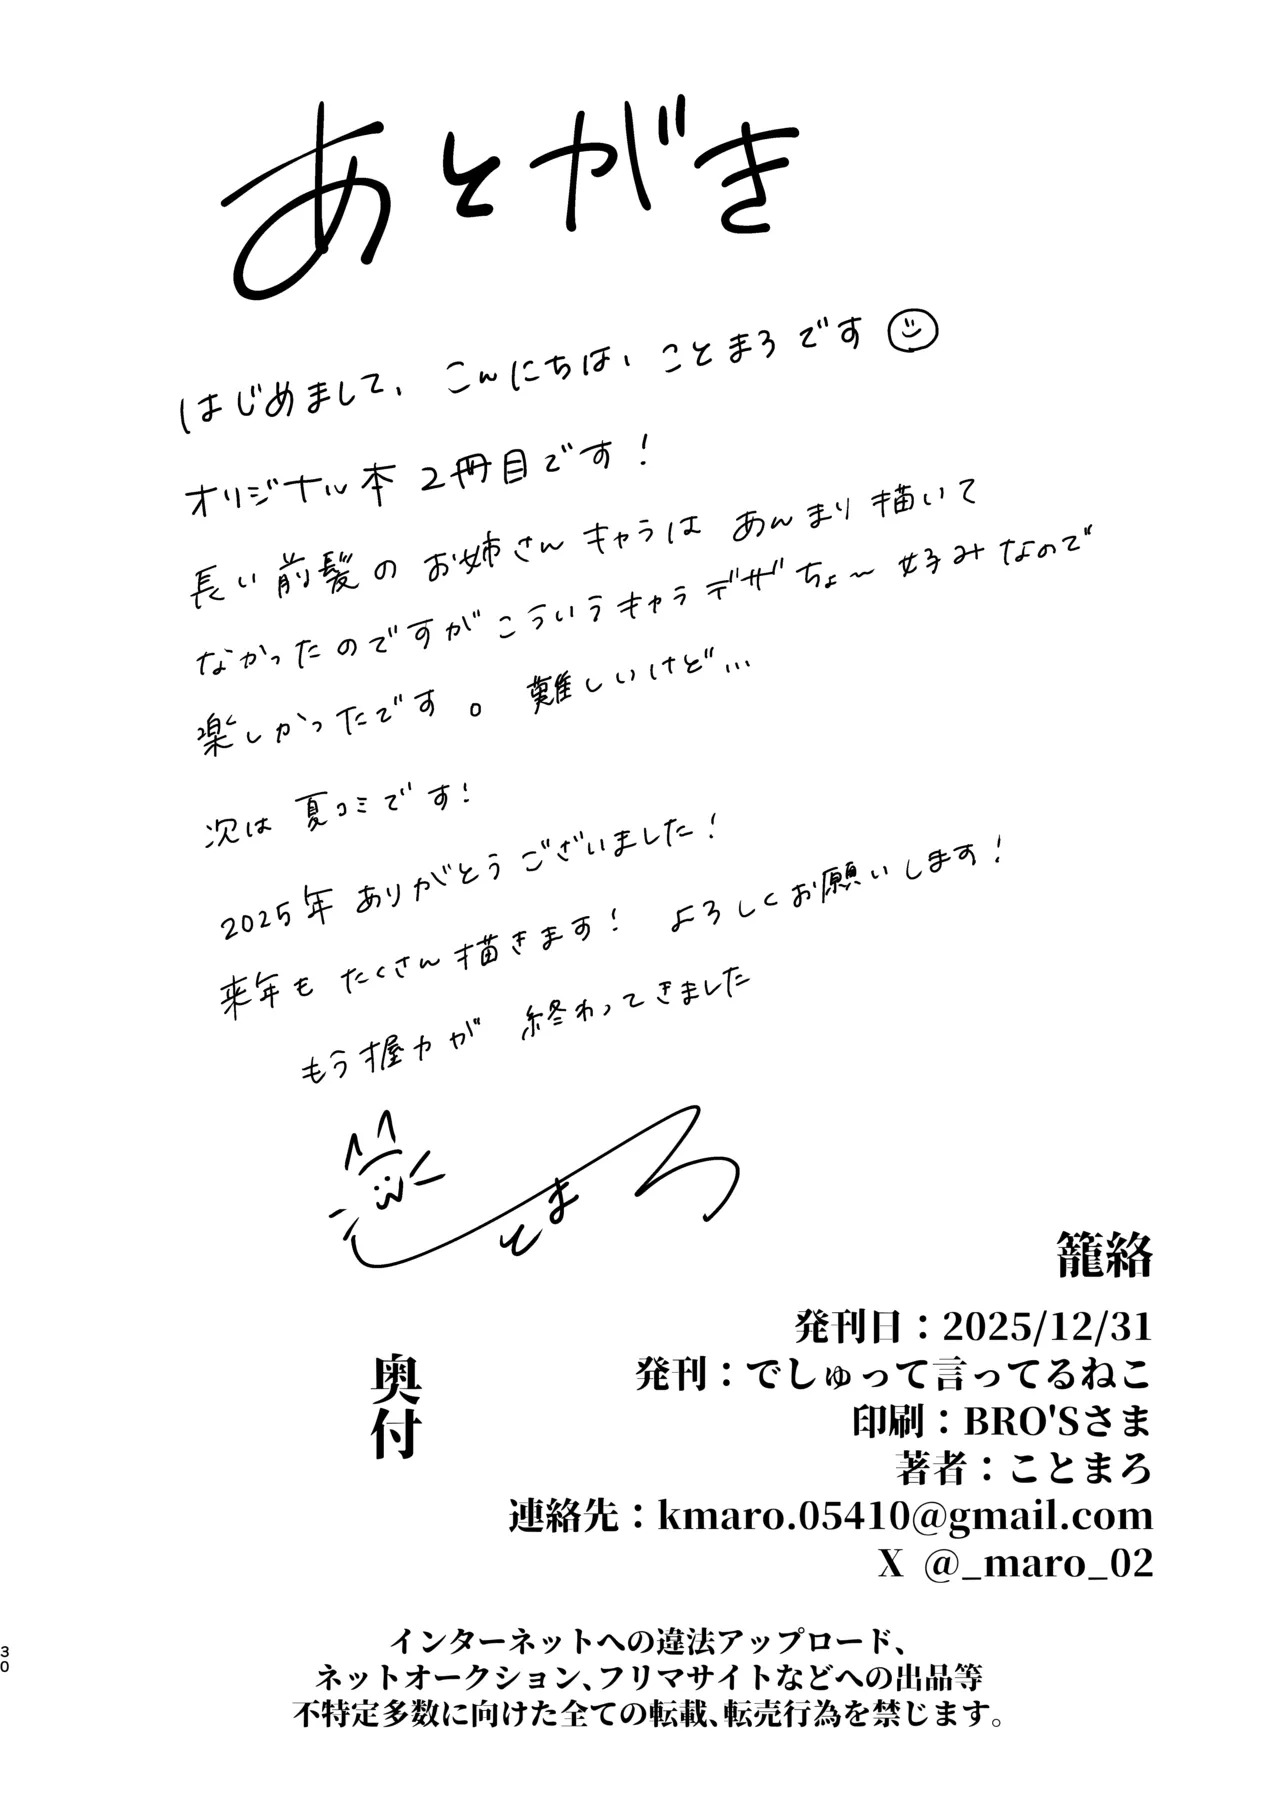 あとがき
はじめまして、こんにちは、ことまろです
オリジナル本2冊目です!
長い前髪のお姉さんキャラは あんまり描いて
なかったのですがこういうキャラデザちょ〜好みなので
楽しかったです。難しいけど…
次は夏コミです!
2025年ありがとうございました!
来年もたくさん描きます! よろしくお願いします!
もう握力が 終わってきました
ことまろ
籠絡
奥付
発刊日:2025/12/31
発刊:でしゅって言ってるねこ
印刷:BRO'Sさま
著者:ことまろ
連絡先:kmaro.05410@gmail.com
X @_maro_02
インターネットへの違法アップロード、
ネットオークション、フリマサイトなどへの出品等
不特定多数に向けた全ての転載、転売行為を禁じます。
30